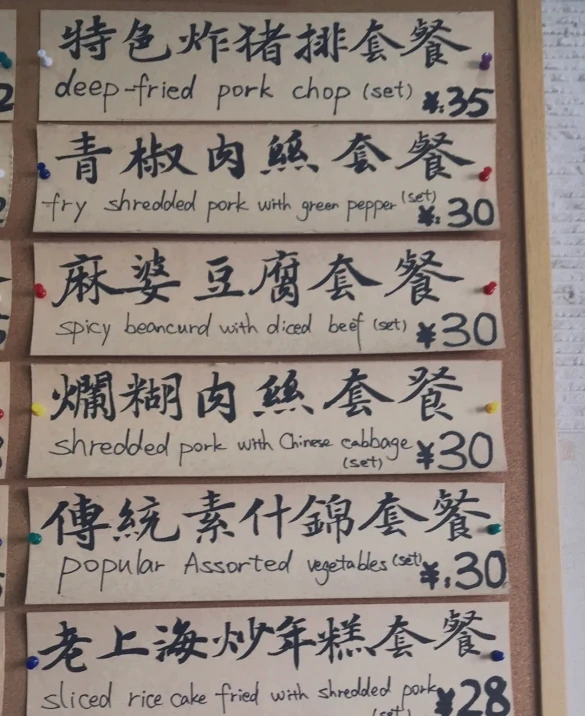 特色炸猪排套餐
deep-fried pork chop (set) ¥:35
青椒肉絲套餐
fry shredded pork with green pepper (set) ¥:30
麻婆豆腐套餐
spicy beancurd with diced beef (set) ¥30
爛糊肉絲套餐
shredded pork with Chinese cabbage (set) ¥30
傳統素什錦套餐
popular Assorted vegetables (set) ¥:30
老上海炒年糕套餐
sliced rice cake fried with shredded pork ¥28
(set)